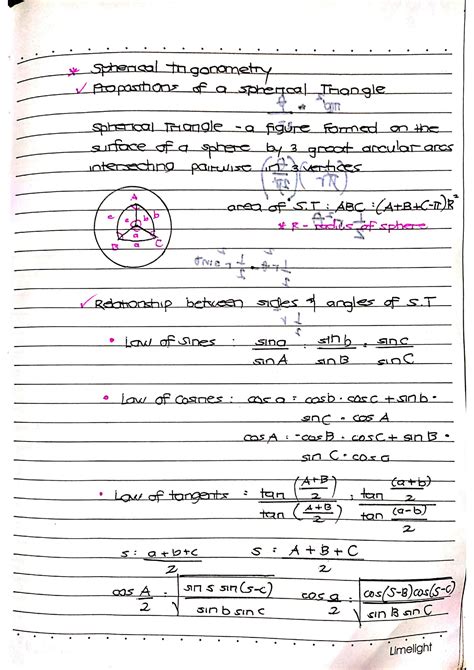 * Spherical trigonometry
✓ Propositions of a spherical Triangle
Spherical Triangle - a figure formed on the
surface of a sphere by 3 great circular arcs
intersecting pairwise in 3 vertices
A
c b b
a
B a C
area of S.T : ABC : (A+B+C-π)R²
* R - radius of sphere
✓ Relationship between sides & angles of S.T
• Law of sines : sin a / sin A : sin b / sin B : sin c / sin C
• Law of cosines : cos a = cos b · cos c + sin b ·
sin c · cos A
cos A : -cos B · cos C + sin B ·
sin C · cos a
• Law of tangents : tan (A+B / 2) / tan (A+B / 2) : tan (a+b) / 2 / tan (a-b) / 2
s : a+b+c / 2 S : A+B+C / 2
cos A/2 : √ sin s sin(s-c) / sin b sin c cos a/2 : √ cos(S-B)cos(S-C) / sin B sin C
Limelight